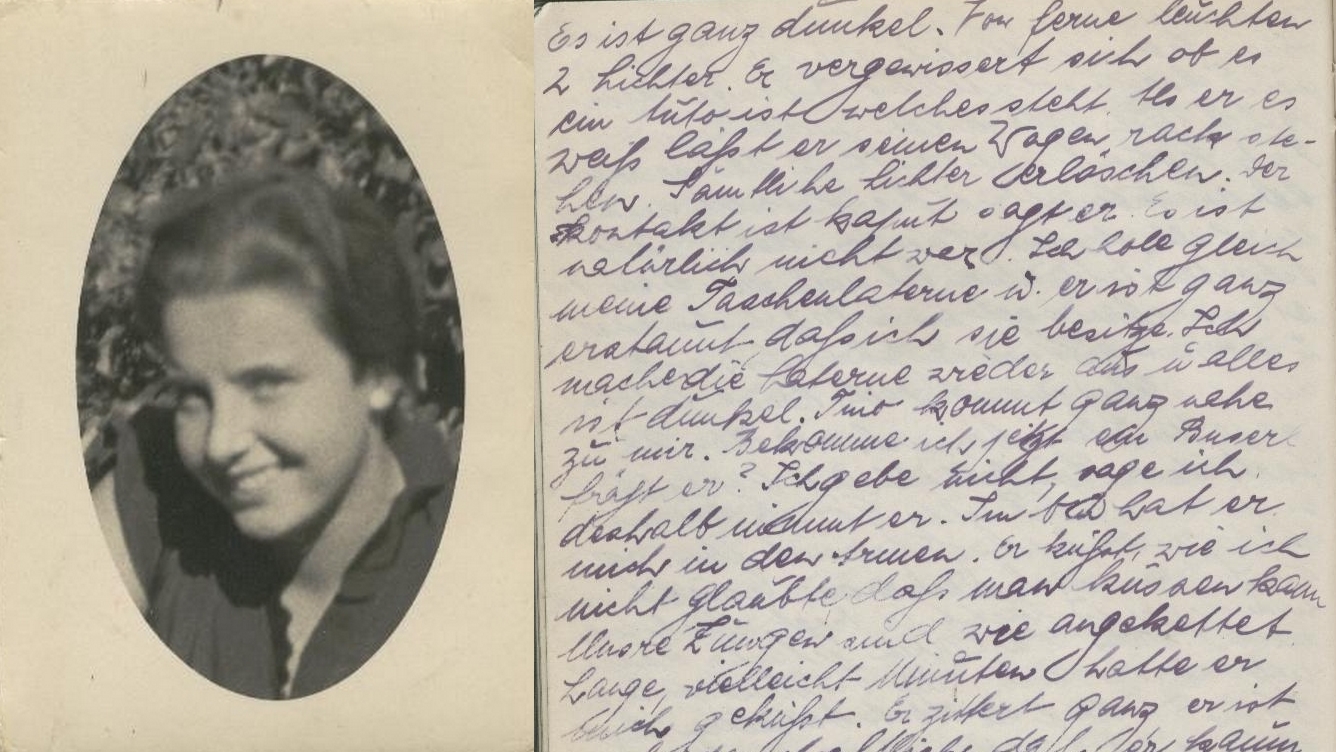 Es ist ganz dunkel. Von ferne leuchten
2 Lichter. Er vergewissert sich ob es
ein Auto ist welches steht. Als er es
weiß läßt er seinen Wagen, rack ste-
hen. Sämtliche Lichter verlöschen. Der
Kontakt ist kaput sagt er. Es ist
natürlich nicht war. Ich hole gleich
meine Taschenlaterne u. er ist ganz
erstaunt daß ich sie besitze. Ich
mache die Laterne wieder aus u alles
ist dunkel. Tino kommt ganz nahe
zu mir. Bekomme ich jetzt ein Buserl
frägt er? Ich gebe nicht, sage ich
deshalb nimmt er. Im Nu hat er
mich in den Armen. Er küßt, wie ich
nicht glaubte, daß man küssen kann
Unsre Zungen sind wie angekettet
Lange, vielleicht Minuten hatte er
mich geküßt. Er zittert ganz er ist